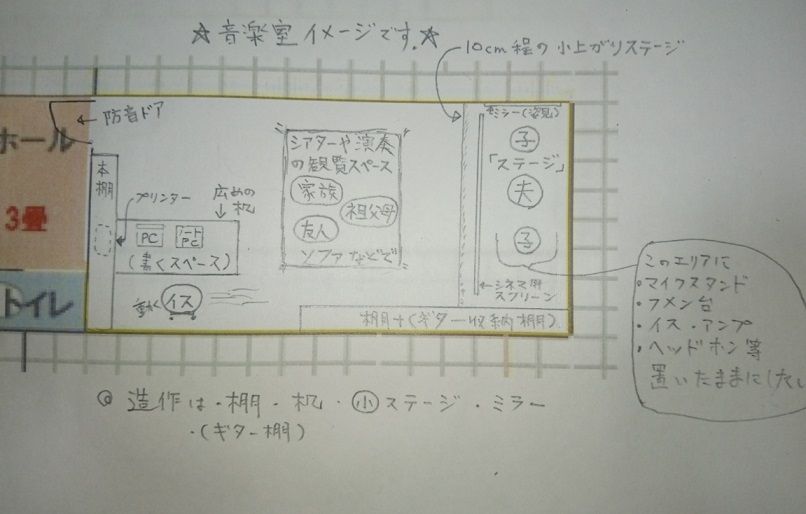 ☆音楽室イメージです.☆
10cm程の小上がりステージ
← 防音ドア
ホール
3畳
トイレ
本棚
プリンター
広めの机
PC
ノートPC
(書くスペース)
動く イス
シアターや演奏
の観覧スペース
家族
祖父母
友人
ソファなどで
ミラー(姿見)
子
「ステージ」
夫
子
←シネマ用
スクリーン
棚+(ギター収納棚)
このエリアに
・マイクスタンド
・フメン台
・イス・アンプ
・ヘッドホン等
置いたままに(たい
◎ 造作は・棚・机・小ステージ・ミラー
・(ギター棚)